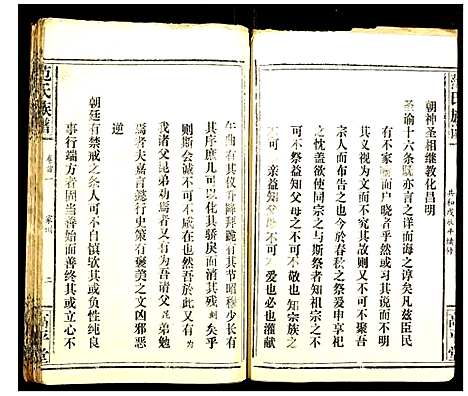 朝神圣相继教化昌明
圣谕十六条亦言之详而诲之谆矣凡兹臣民
有不家喻而户晓者乎然或习其说而不明
其意则视为故文又不可以不聚吾
宗人而布告之也今于春秋之祭爱申享祀
之义俾同宗之与斯祭者知祖宗之不
可不祭益知父母之不可不敬也知宗族之
不可不亲益知父母不可不爱也必也灌献
午曲有其仪升降拜跪有其节昭穆少长有
其序庶几可不为骄戾而消其残刻矣乎
则斯会诚不可不成在也然吾于此又有为
我诸父昆弟劝焉者又有为吾诸父昆弟勉
焉者夫嘉言懿行史策有褒美之文凶邪恶
逆
朝廷有禁戒之条人可不自慎欤其或负性纯良
事行端方者固当善始而善终其或立心不
范氏族谱
卷首一
家训
二
高平堂
范氏族谱
共和戊辰年续修
高平堂